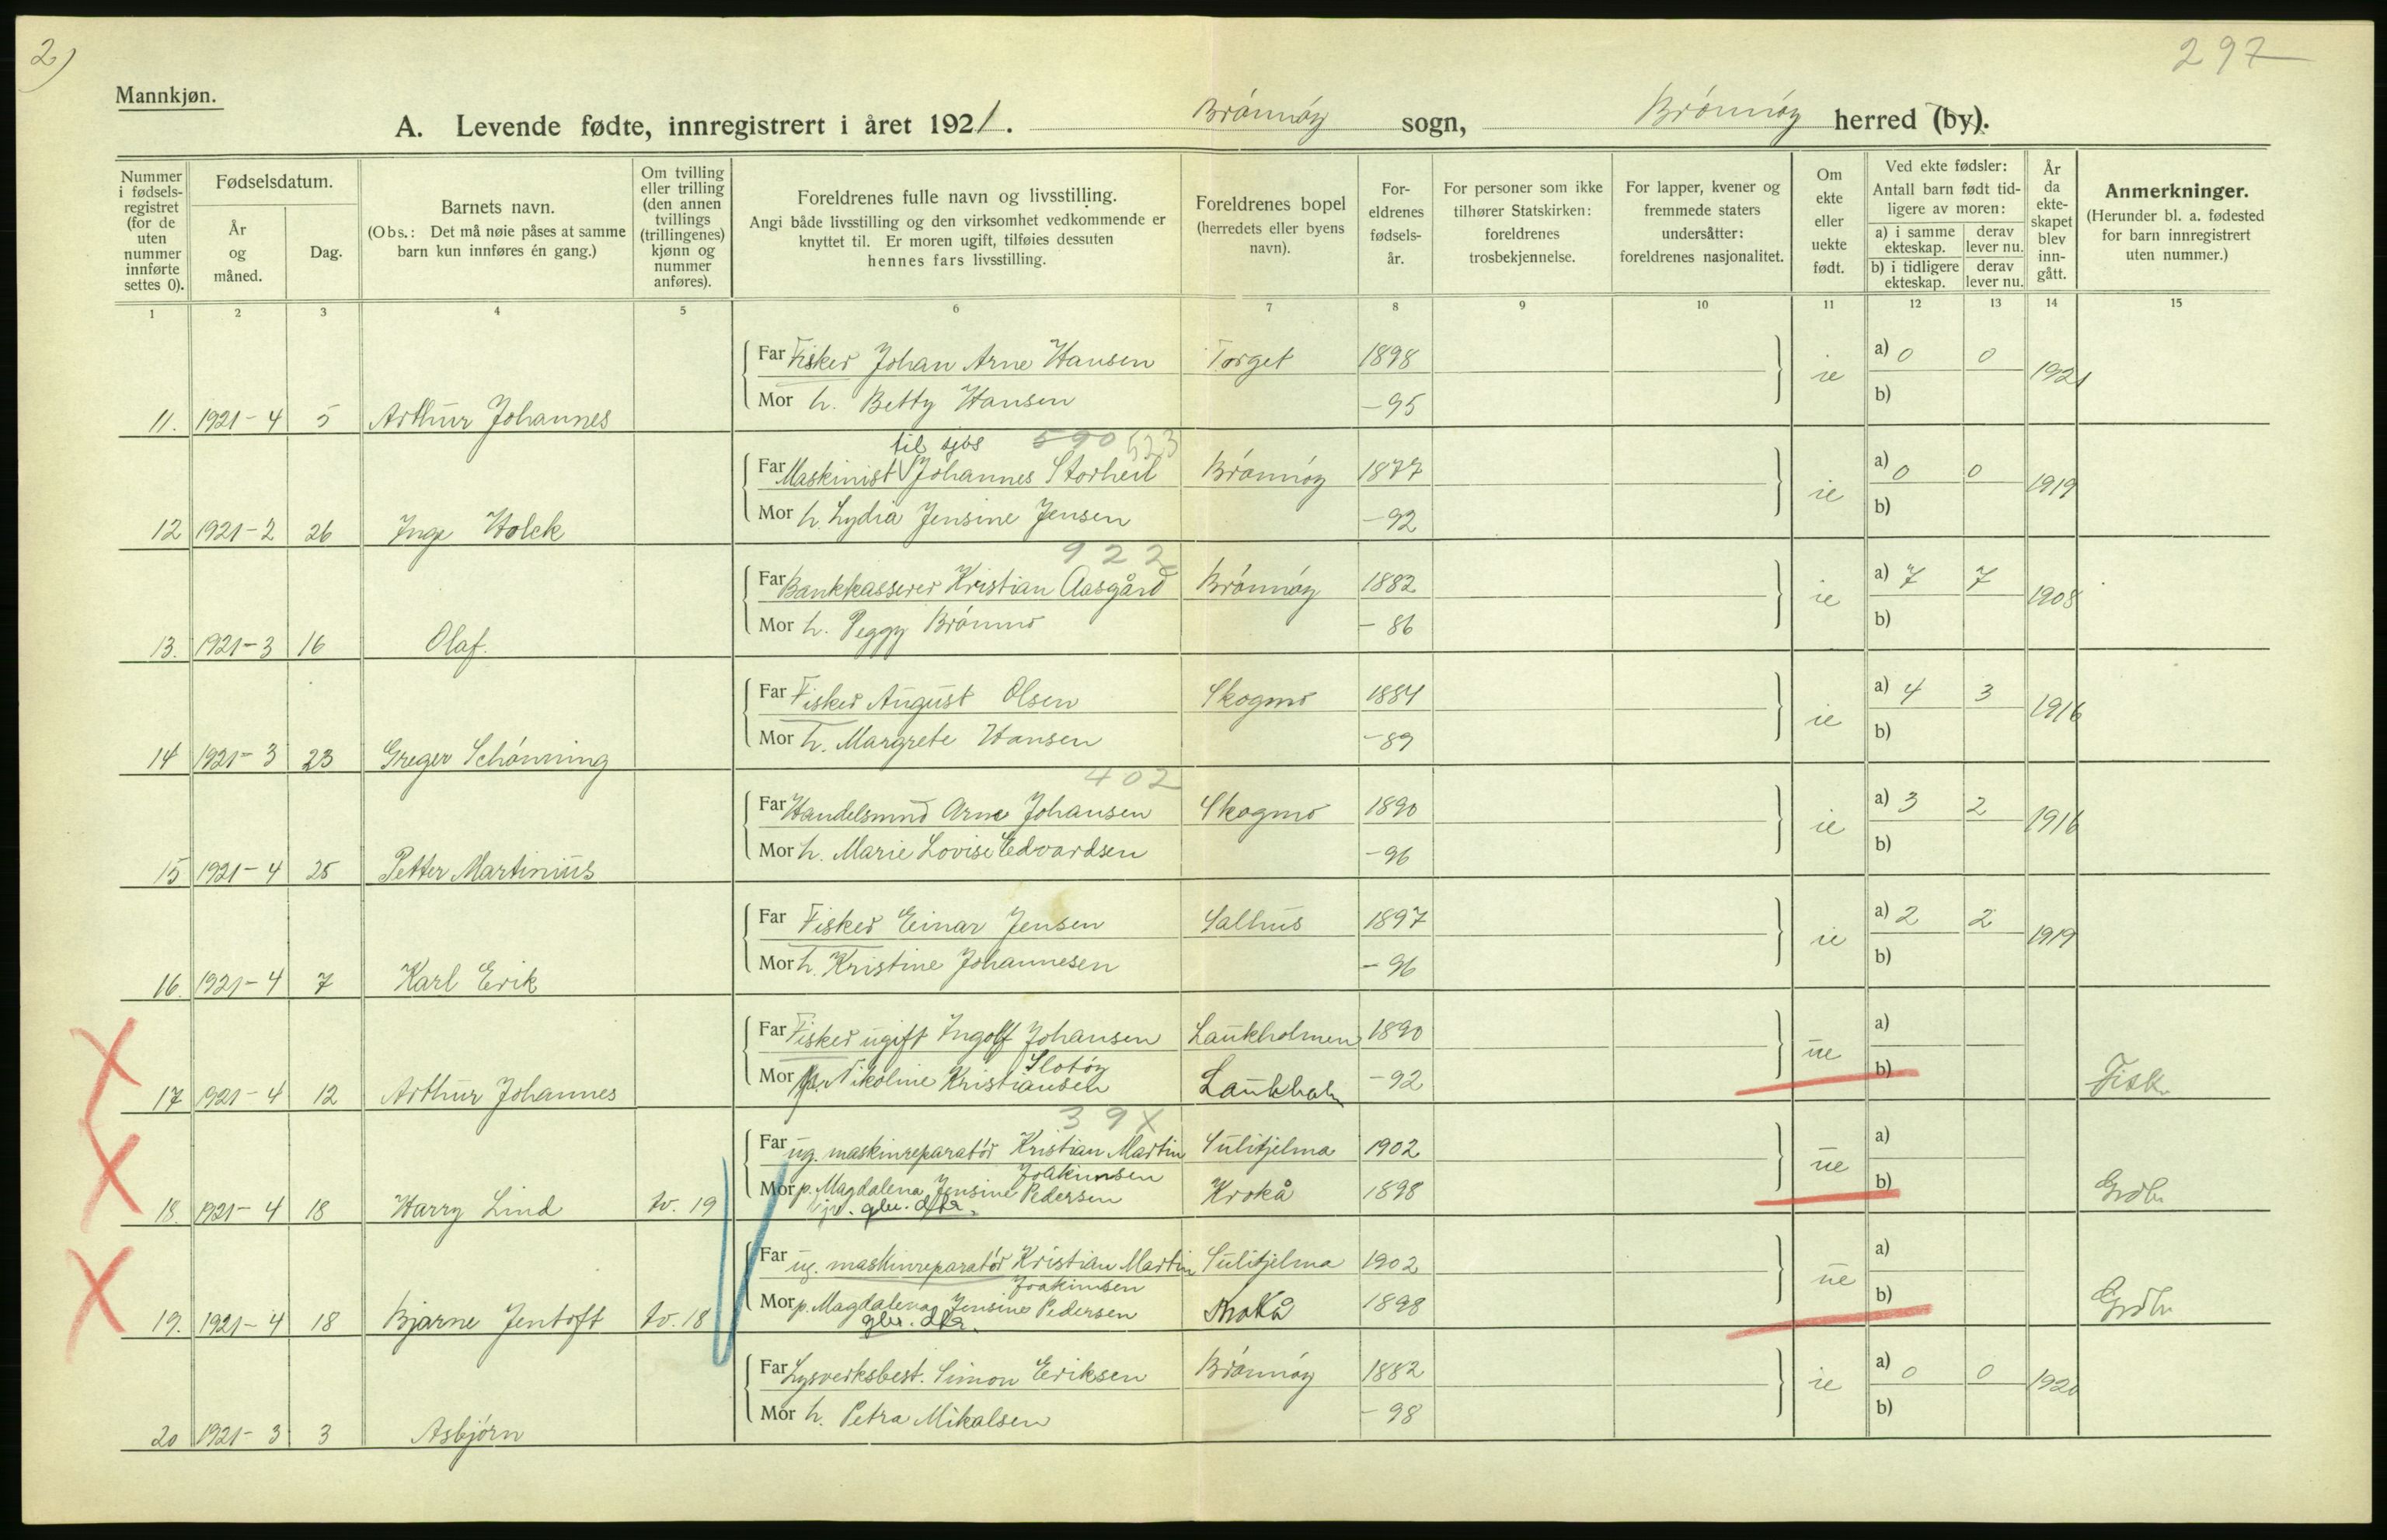 2)
297
Mannkjøn.
A. Levende fødte, innregistrert i året 1921. Brönnöy sogn, Brönnöy herred (by).
Nummer i fødselsregistret (for de uten nummer innførte settes 0).
Fødselsdatum.
År og måned.
Dag.
Barnets navn.
(Obs.: Det må nøie påses at samme barn kun innføres én gang.)
Om tvilling eller trilling (den annen tvillings (trillingenes) kjønn og nummer anføres).
Foreldrenes fulle navn og livsstilling.
Angi både livsstilling og den virksomhet vedkommende er knyttet til. Er moren ugift, tilføies dessuten hennes fars livsstilling.
Foreldrenes bopel (herredets eller byens navn).
Foreldrenes fødselsår.
For personer som ikke tilhører Statskirken: foreldrenes trosbekjennelse.
For lapper, kvener og fremmede staters undersåtter: foreldrenes nasjonalitet.
Om ekte eller uekte født.
Ved ekte fødsler:
Antall barn født tidligere av moren:
a) i samme ekteskap. derav lever nu.
b) i tidligere ekteskap. derav lever nu.
År da ekteskapet blev inngått.
Anmerkninger.
(Herunder bl. a. fødested for barn innregistrert uten nummer.)
1 2 3 4 5 6 7 8 9 10 11 12 13 14 15
Far Fisker Johan Arne Hansen Torget 1898 ie a) 0 0 1921
Mor h. Betty Hansen -95 b)
11. 1921-4 5 Arthur Johannes
til sjøs 590 523
Far Maskinist Johannes Storheil Brönnöy 1877 ie a) 0 0 1919
Mor h. Lydia Jensine Jensen -92 b)
12 1921-2 26 Inge Holck
922
Far Bankkasserer Kristian Aasgård Brönnöy 1882 ie a) 7 7 1908
Mor h. Peggy Brönmo -86 b)
13. 1921-3 16 Olaf.
Far Fisker August Olsen Skogmo 1884 ie a) 4 3 1916
Mor h. Margrete Hansen -89 b)
14 1921-3 23 Greger Schönning
402
Far Handelsmnd Arne Johansen Skogmo 1890 ie a) 3 2 1916
Mor h. Marie Lovise Edvardsen -96 b)
15 1921-4 25 Petter Martinius
Far Fisker Einar Jensen Salhus 1897 ie a) 2 2 1919
Mor h. Kristine Johannesen -96 b)
16. 1921-4 7 Karl Erik
Far Fisker ugift Ingolf Johansen Laukholmen 1890 ue a)
Slotöy
Mor Nikoline Kristiansen Laukholm -92 b) Fisk.
17 1921-4 12 Arthur Johannes
39X
Far ug. maskinreparatör Kristian Martin Sulitjelma 1902 ue a)
Joakimsen
Mor p. Magdalena Jensine Pedersen Krokå 1898 b) Grdbr
gbr. dtr.
18. 1921-4 18 Harry Lind tv. 19
Far ug. maskinreparatör Kristian Martin Sulitjelma 1902 ue a)
Joakimsen
Mor p. Magdalena Jensine Pedersen Krokå 1898 b) Grdbr
gbr. dtr.
19. 1921-4 18 Bjarne Jentoft tv. 18
Far Lysverksbest. Simon Eriksen Brönnöy 1882 ie a) 0 0 1920
Mor h. Petra Mikalsen -98 b)
20 1921-3 3 Asbjörn